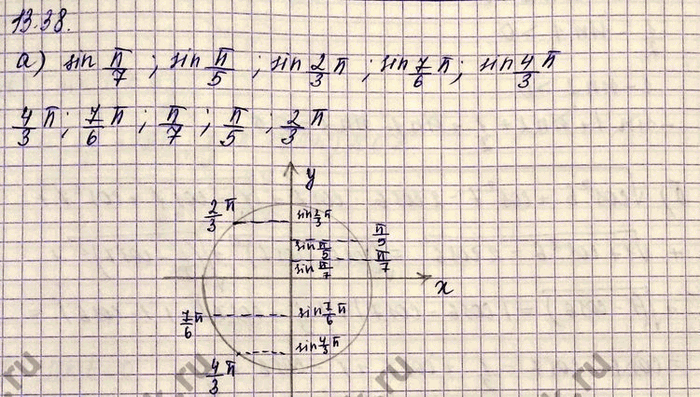 13.38.
а) sin π/7 ; sin π/5 ; sin 2/3 π ; sin 7/6 π ; sin 4/3 π
4/3 π ; 7/6 π ; π/7 ; π/5 ; 2/3 π
y
2/3 π sin 2/3 π
sin π/5 π/5
sin π/7 π/7
x
7/6 π sin 7/6 π
sin 4/3 π
4/3 π
.ru
k.ru